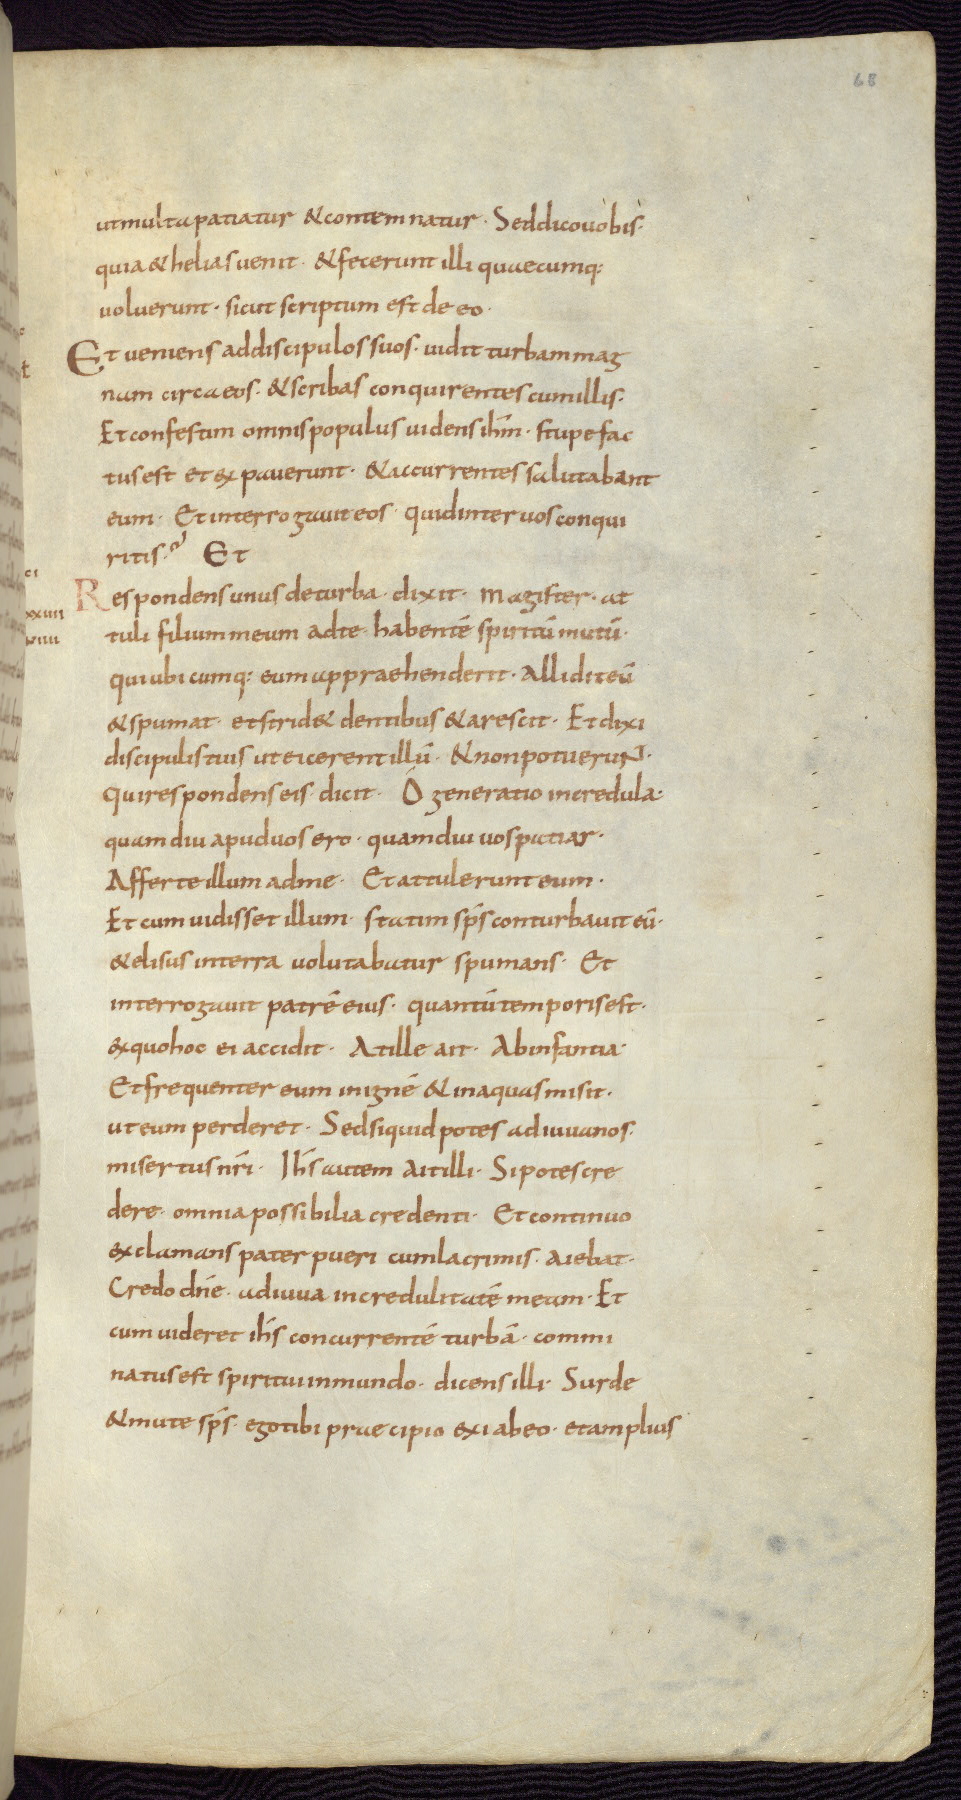 68
utmulta patiatur &contemnatur · Seddicouobis·
quia &helias uenit · &fecerunt illi quaecumq:
uoluerunt · sicut scriptum est de eo ·
Et ueniens addiscipulos suos · uidit turbam mag
nam circa eos · &scribas conquirentes cumillis ·
Et confestim omnis populus uidens ihm̄ · stupefac
tus est et expauerunt · &accurrentes salutabant
eum · Et interrogauit eos · quidinter uos conqui
ritis? Et
Respondens unus deturba · dixit · Magister · at
tuli filium meum adte habentē spiritū mutū ·
qui ubicumq: eum appraehenderit · Alliditeū
&spumat · etstrid& dentibus &arescit · Et dixi
discipulistuis uteicerent illū · &nonpotuerunt ·
Qui respondens eis · dicit · O generatio incredula ·
quam diu apuduos ero · quamdiu uos patiar ·
Afferte illum adme · Et attulerunt eum ·
Et cum uidisset illum · statim sp̄s conturbauit eū ·
&elisus interra uolutabatur spumans · Et
interrogauit patrē eius · quantū temporis est ·
exquohoc ei accidit · Atille ait · Abinfantia ·
Et frequenter eum inignē &inaquas misit ·
ut eum perderet · Sedsiquid potes adiuuanos ·
misertus nr̄i · Ih̄s autem aitilli · Sipotes cre
dere · omnia possibilia credenti · Et continuo
exclamans pater pueri cumlacrimis · aiebat ·
Credo dn̄e · adiuua incredulitatē meam · Et
cum uideret ih̄s concurrentē turbā · commi
natus est spiritui inmundo · dicens illi · Surde
&mute sp̄s · ego tibi praecipio exi abeo · et amplius